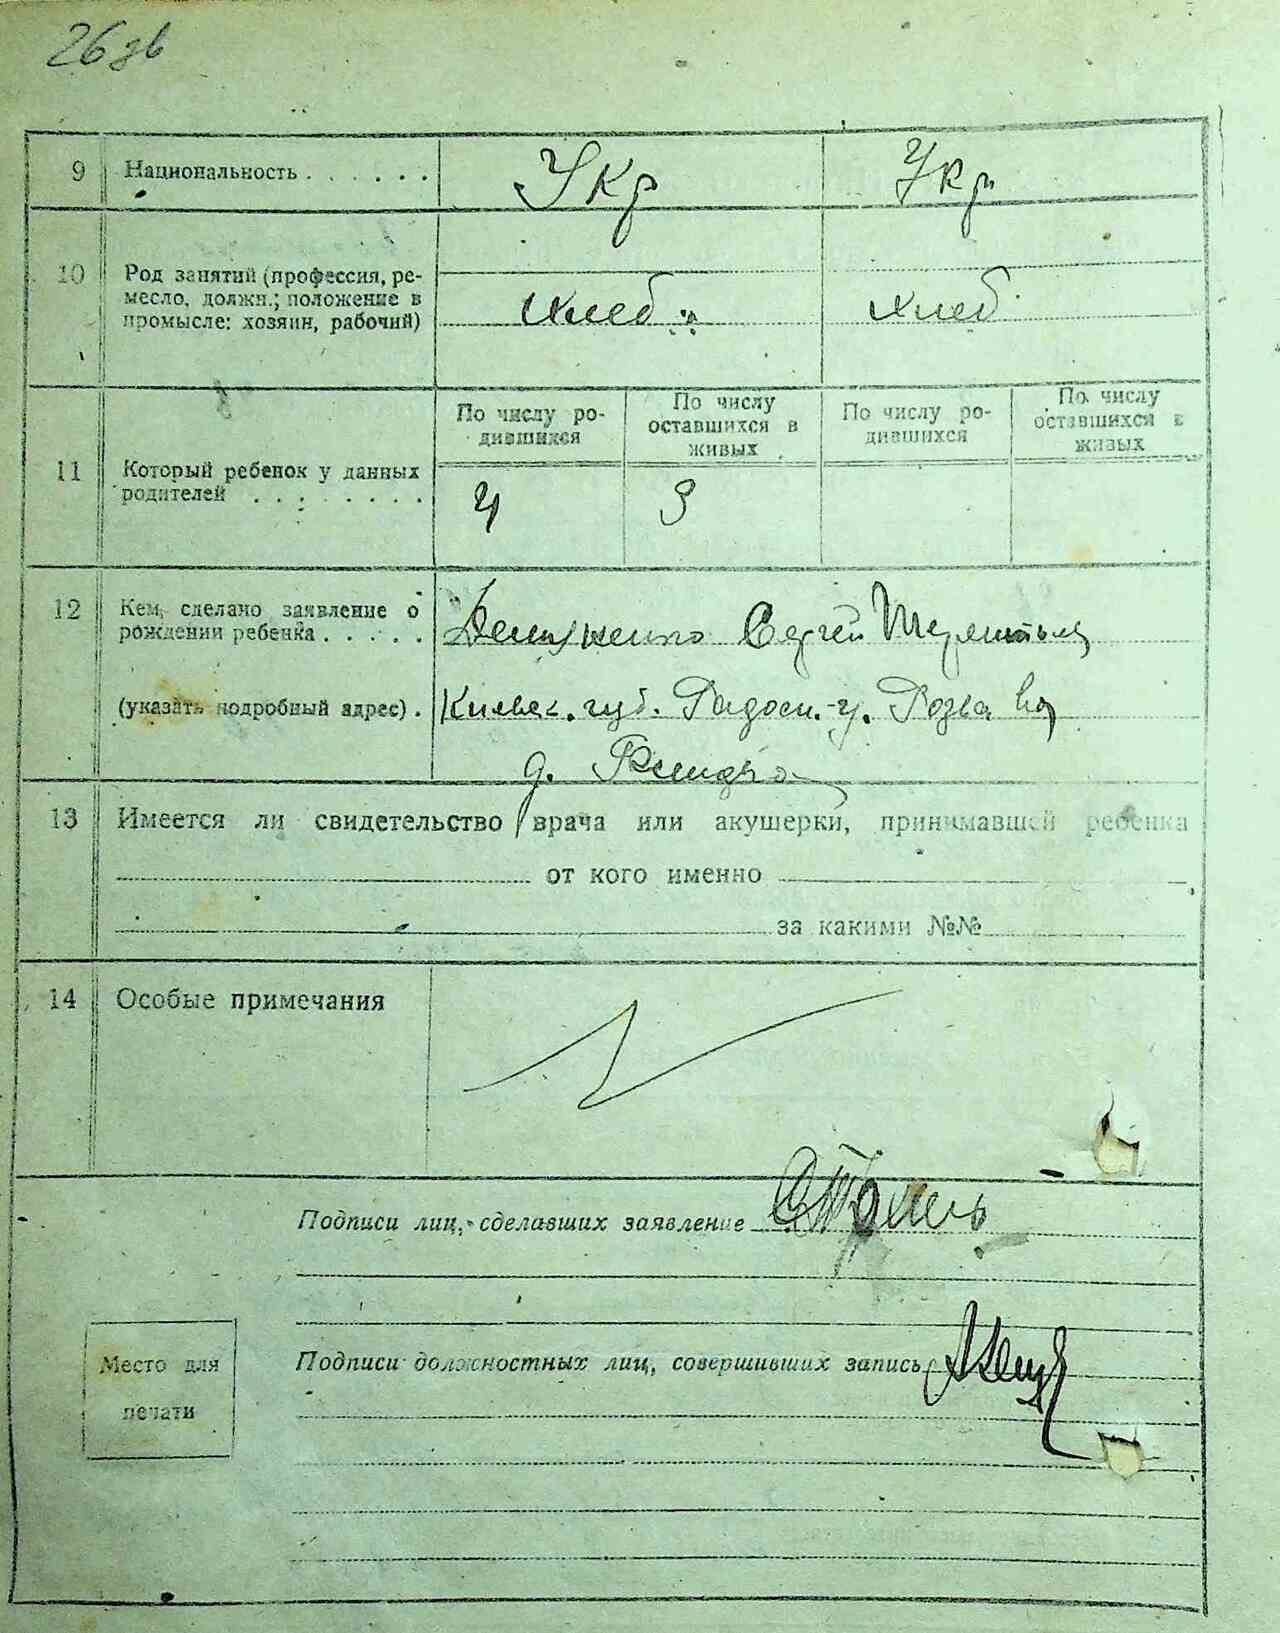 26 зв
9 Национальность . . . . . . Укр Укр
10 Род занятий (профессия, ре-
месло, должн.; положение в
промысле: хозяин, рабочий)
хлеб хлеб
По числу ро-
дившихся
По числу
оставшихся в
живых
По числу ро-
дившихся
По числу
оставшихся в
живых
11 Который ребенок у данных
родителей . . . . . . . .
4 3
12 Кем, сделано заявление о
рождении ребенка . . . . .
Сергей
(указать подробный адрес) . Киевск. губ. у. Розва
д.
13 Имеется ли свидетельство врача или акушерки, принимавшей ребенка
от кого именно
за какими №№
14 Особые примечания
Подписи лиц, сделавших заявление
Подписи должностных лиц, совершивших запись
Место для
печати